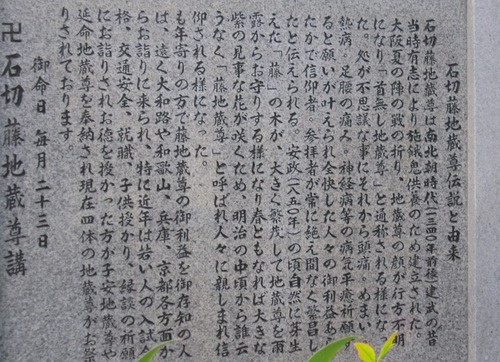 石切藤地蔵尊伝説と由来
石切藤地蔵尊は南北朝時代(一三四〇年前後)建武の昔
当時有志により施餓鬼供養のため建立された。
大阪夏の陣の戦の折り、地蔵尊の顔が行方不明
になり「首無し地蔵尊」と通称される様になっ
た。処が不思議な事にそれから頭痛。めまい
熱病。足腰の痛み。神経病等の病気平癒祈願す
ると願いが叶えられ全快した人々の御利益あら
たかで信仰者、参拝者が常に絶え間なく繁昌し
たと伝えられる。安政(一八五〇年)の頃自然に芽生
えた「藤」の木が、大きく繁茂して地蔵尊を雨
露からお守りする様になり春ともなれば大きな
紫の見事な花が咲くため、明治の中頃から誰云
うなく「藤地蔵尊」と呼ばれ人々に親しまれ信
仰される様になった。
も年寄りの方で藤地蔵尊の御利益を御存知の人
は、遠く大和路や和歌山、兵庫、京都各方面か
らお詣りに来られ、特に近年は若い人の入試合
格、交通安全、就職、子供授かり、縁談の祈願
にお詣りされお徳を授かった方が子安地蔵尊や
延命地蔵尊を奉納され現在四体の地蔵尊がお祭
りされております。
御命日 毎月二十三日
卍石切藤地蔵尊講